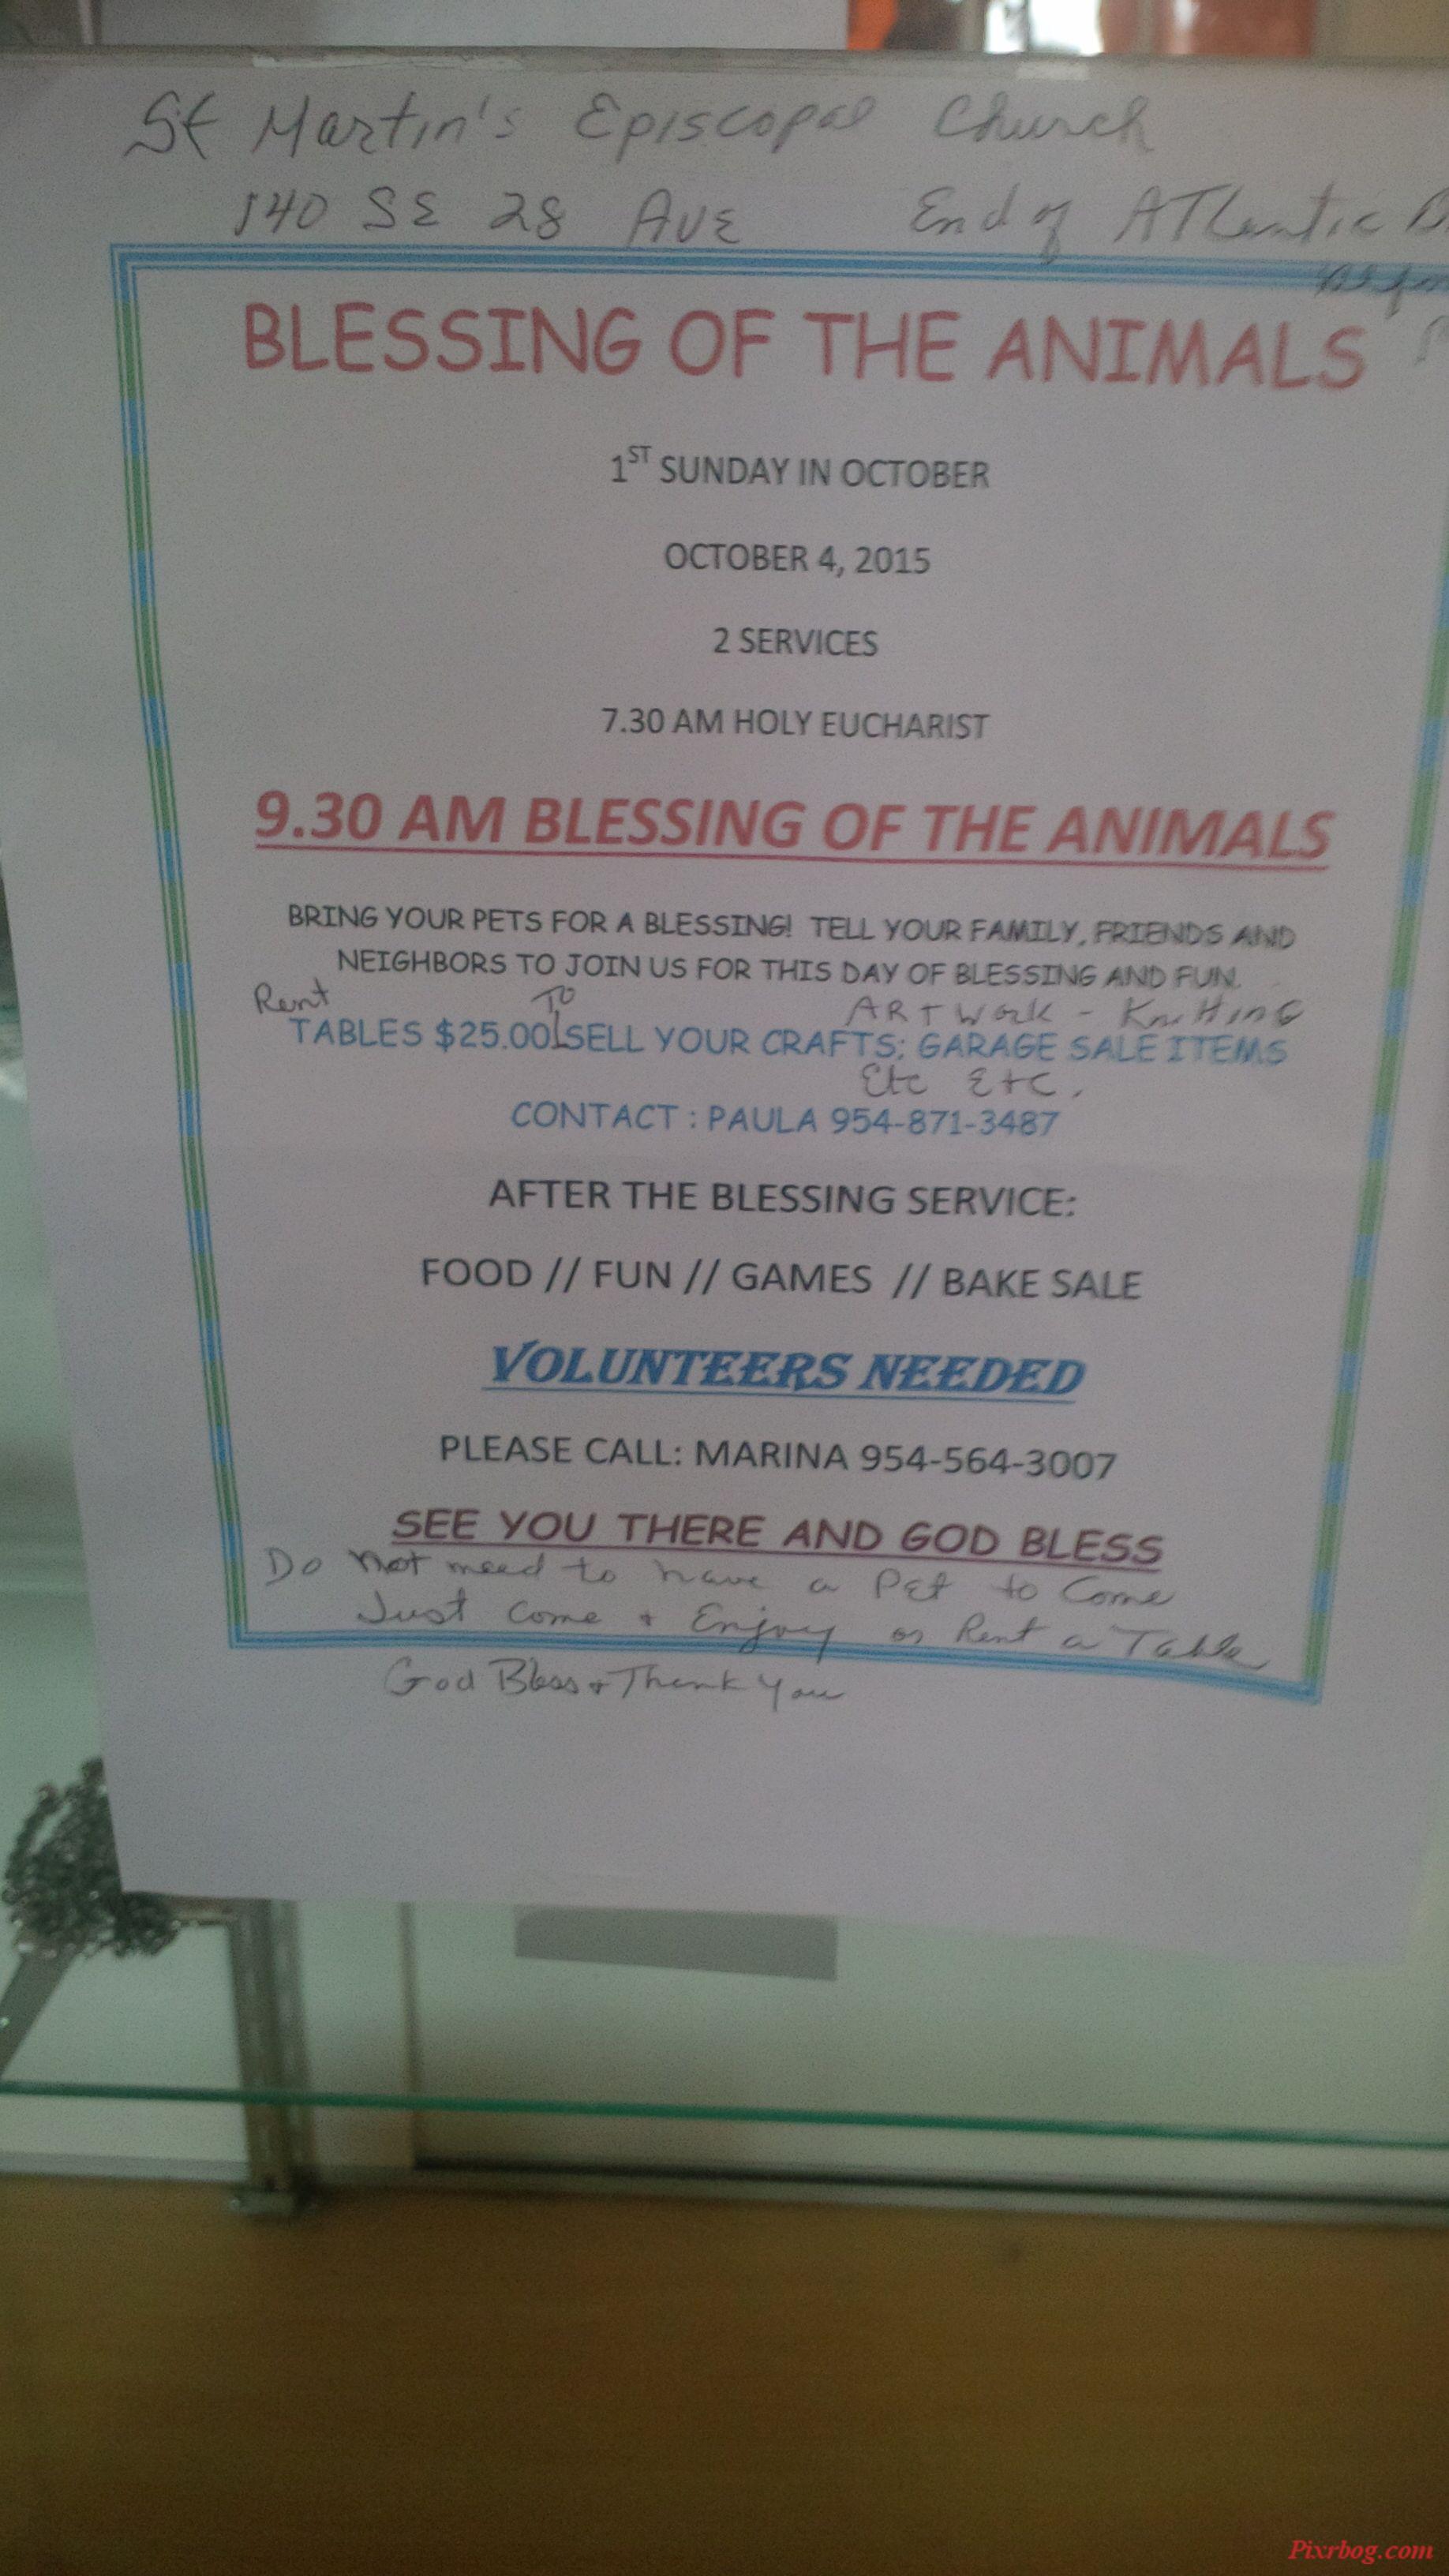 St Martin's Episcopal Church
140 SE 28 AVE End of ATLantic
BLESSING OF THE ANIMALS
1ST SUNDAY IN OCTOBER
OCTOBER 4, 2015
2 SERVICES
7.30 AM HOLY EUCHARIST
9.30 AM BLESSING OF THE ANIMALS
BRING YOUR PETS FOR A BLESSING! TELL YOUR FAMILY, FRIENDS AND
NEIGHBORS TO JOIN US FOR THIS DAY OF BLESSING AND FUN.
Rent TO ARTWork - KnittinG
TABLES $25.00 SELL YOUR CRAFTS; GARAGE SALE ITEMS
Etc Etc.
CONTACT : PAULA 954-871-3487
AFTER THE BLESSING SERVICE:
FOOD // FUN // GAMES // BAKE SALE
VOLUNTEERS NEEDED
PLEASE CALL: MARINA 954-564-3007
SEE YOU THERE AND GOD BLESS
Do not need to have a PEt to Come
Just Come + Enjoy or Rent a Table
God Bless + Thank You
Pixrbog.com